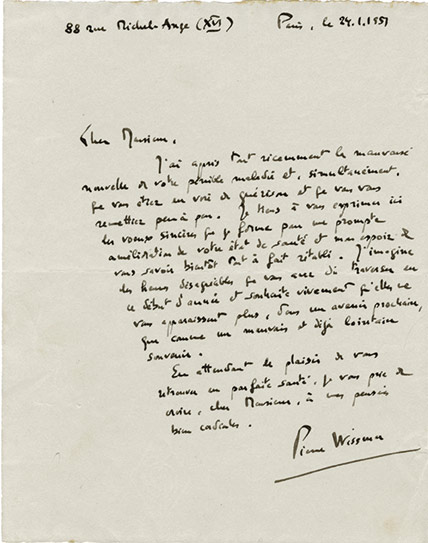 88 rue Michel-Ange (XVI) Paris, le 24.1.1951
Cher Monsieur,
J'ai appris tout récemment la mauvaise
nouvelle de votre pénible maladie et, simultanément,
que vous étiez en voie de guérison et que vous vous
remettiez peu à peu. Je tiens à vous exprimer ici
les voeux sincères que je forme pour une prompte
amélioration de votre état de santé et mon espoir de
vous savoir bientôt tout à fait rétabli. J'imagine
les heures désagréables que vous avez dû traverser en
ce début d'année et souhaite vivement qu'elles ne
vous apparaissent plus, dans un avenir prochain,
que comme un mauvais et déjà lointain
souvenir.
En attendant le plaisir de vous
retrouver en parfaite santé, je vous prie de
croire, cher Monsieur, à mes pensées
bien cordiales.
Pierre Wissmer